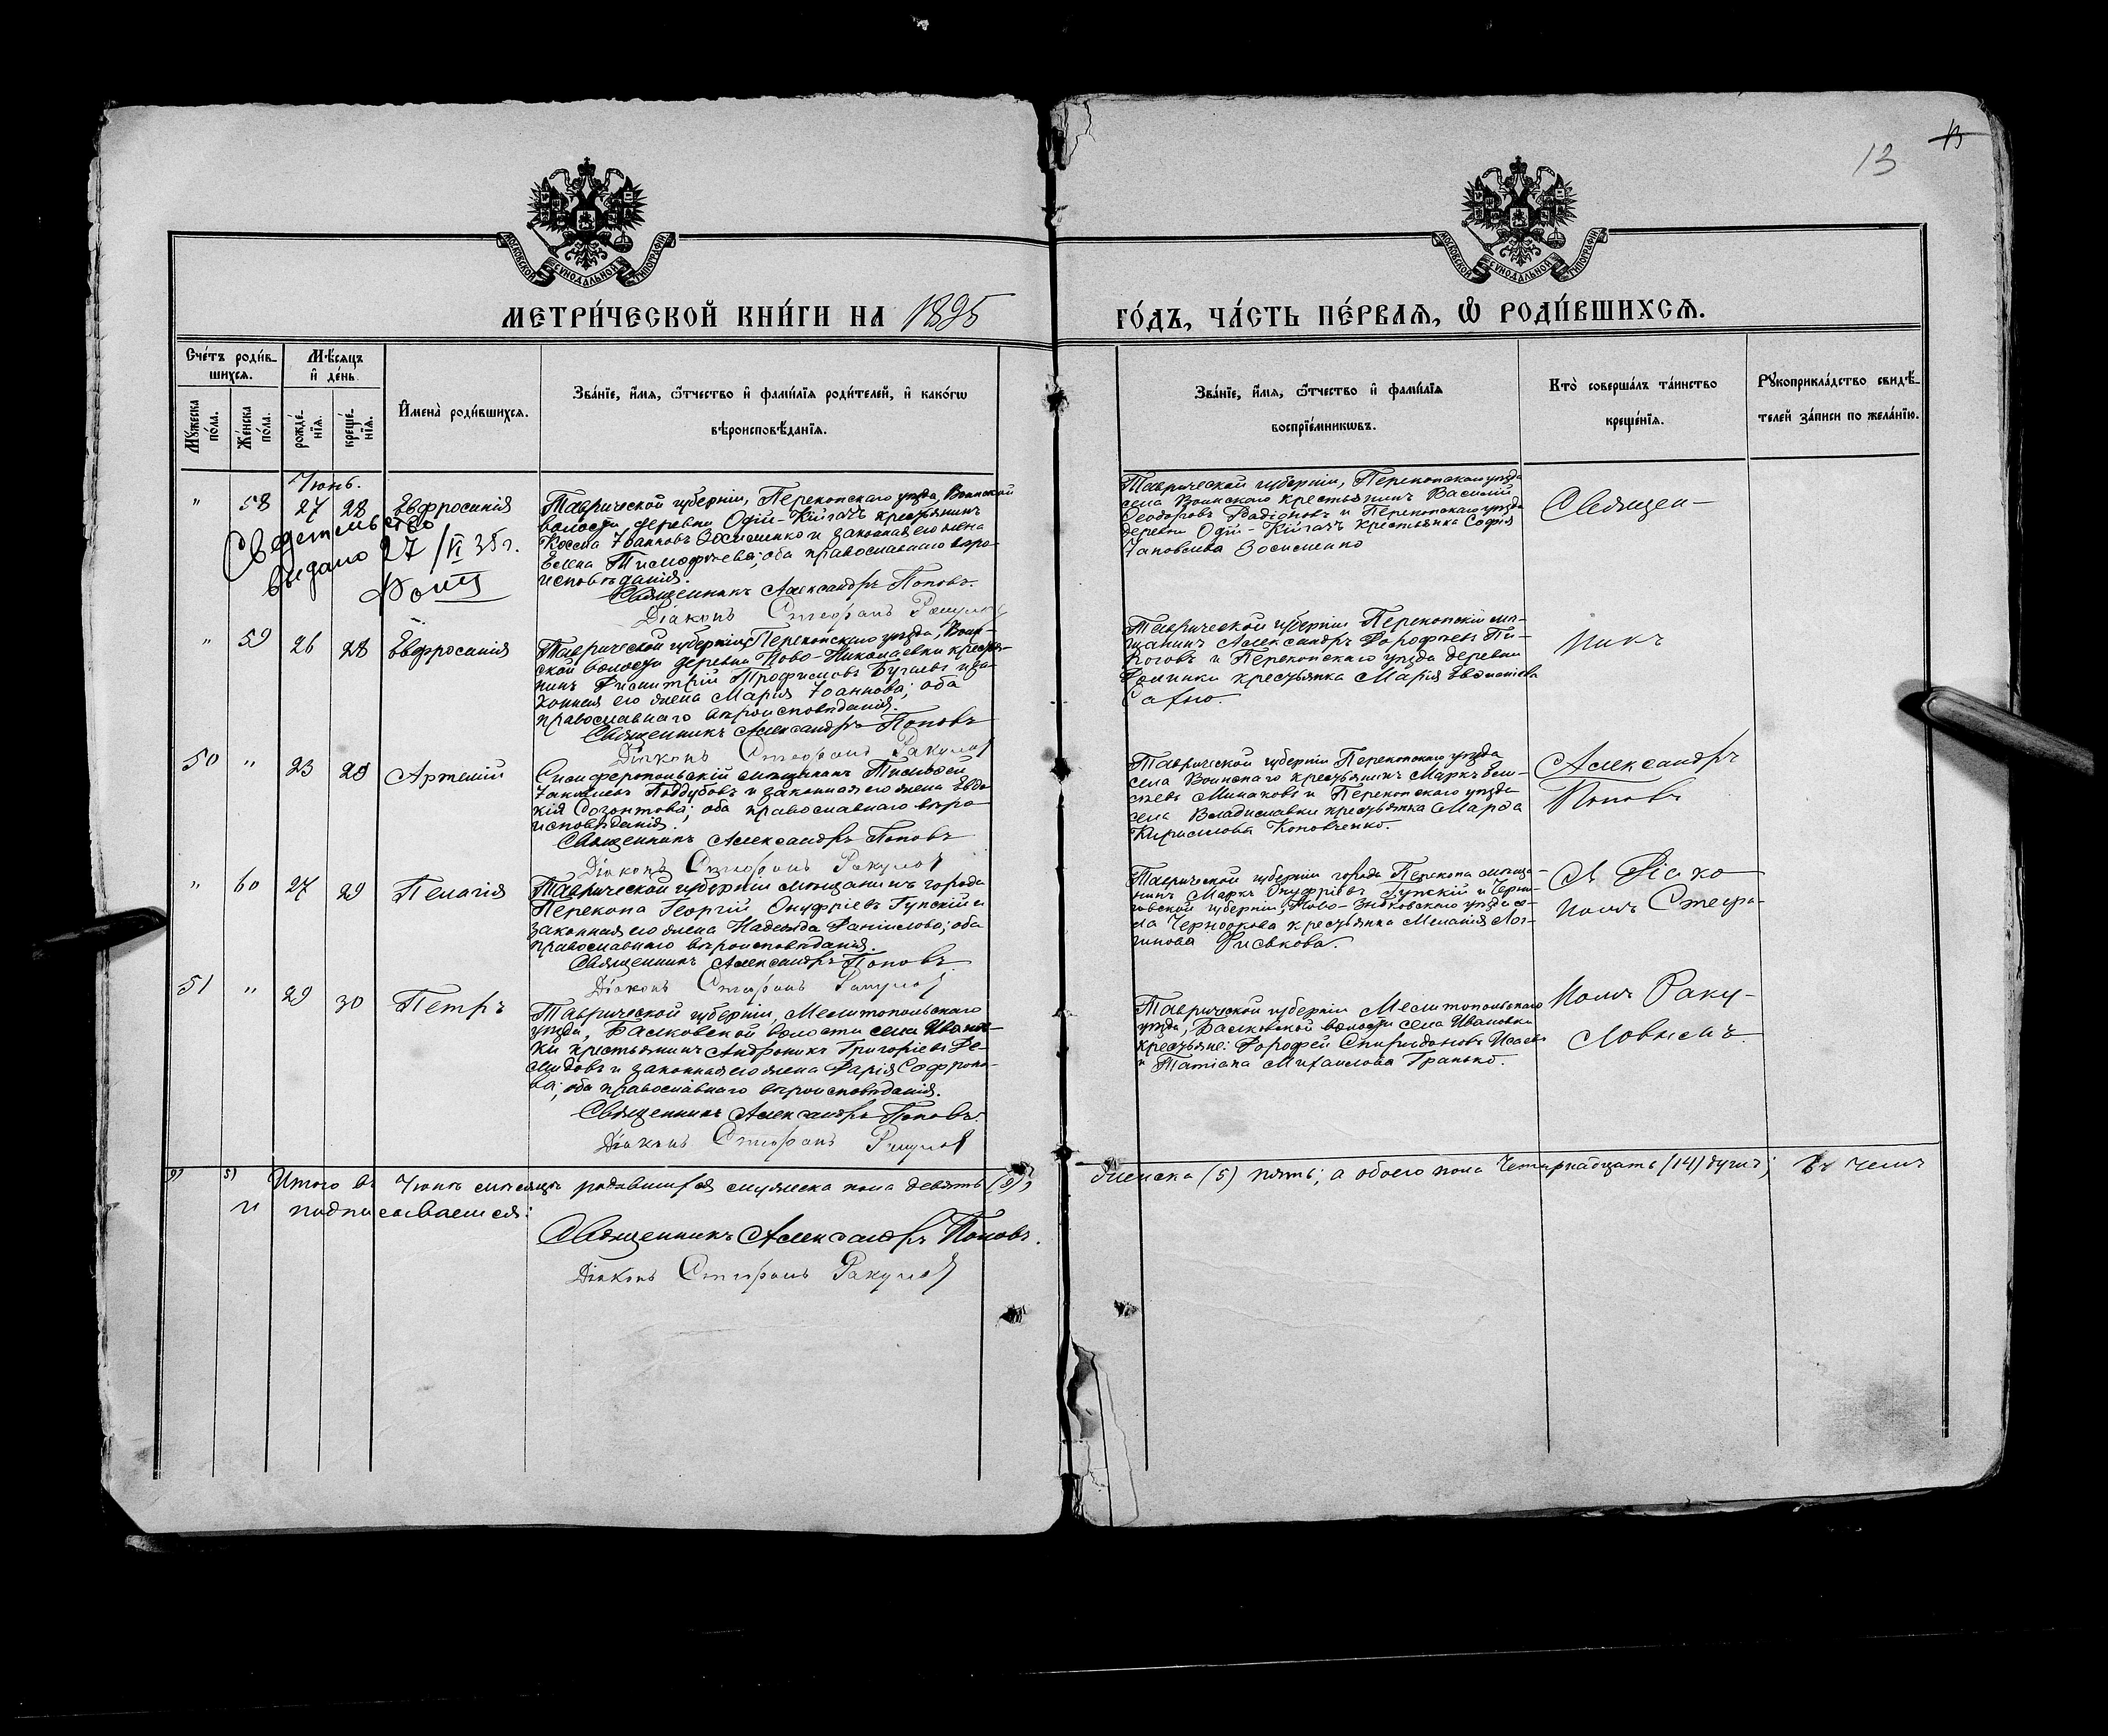 13
13
МОСКОВСКОЙ СѴНОДАЛЬНОЙ ТИПОГРАФІИ
МОСКОВСКОЙ СѴНОДАЛЬНОЙ ТИПОГРАФІИ
МЕТРИ́ЧЕСКОЙ КНИ́ГИ НА 1895
ГО́ДЪ, ЧА́СТЬ ПЕ́РВАѦ, Ѽ РОДИ́ВШИХСѦ.
Счéтъ роди́в-
шихся.
Мѣ́сяцъ
и̂ дéнь.
Мꙋ́жеска пóла.
Жéнска пóла.
рождé-
нїя.
крещé-
нїя.
И̂менà роди́вшихся.
Звáнїе, и́мя, ѻ́тчество и̂ фами́лїя роди́телей, и̂ какóгѡ
вѣроисповѣ́данїя.
Звáнїе, и́мя, ѻ́тчество и̂ фами́лїя
воспрїéмникѡвъ.
Ктò совершáлъ тáинство
крещéнїя.
Рꙋкоприклáдство свидѣ́-
телей зáписи по желáнїю.
Іюнь.
" 58 27 28 Евфросинія
Таврической губерніи, Перекопскаго уѣзда, Воинской
волости деревни Одій-Кійгачъ крестьянинъ
Косма Іоанновъ Зосименко и законная его жена
Елена Тимофѣева; оба православнаго вѣро-
исповѣданія.
Священникъ Александръ Поповъ.
Діаконъ Стефанъ Ракулов
Сведетельство
выдано 27/VI 35 г.
Таврической губерніи, Перекопскаго уѣзда
села Воинскаго крестьянинъ Василій
Феодоровъ Радіоновъ и Перекопскаго уѣзда
деревни Одій-Кійгачъ крестьянка Софія
Іаковлева Зосименко
Священ-
" 59 26 28 Евфросинія
Таврической губерніи, Перекопскаго уѣзда, Воин-
ской волости деревни Ново-Николаевки крестья-
нинъ Димитрій Трофимовъ Бугаевъ и за-
конная его жена Марія Іоаннова; оба
православнаго вѣроисповѣданія.
Священникъ Александръ Поповъ
Діаконъ Стефанъ Ракулов
Таврической губерніи Перекопскій мѣ-
щанинъ Александръ Дорофѣевъ Пи-
роговъ и Перекопскаго уѣзда деревни
крестьянка Марія
никъ
50 " 23 28 Артемій
Симферопольскій мѣщанинъ Тимофей
Іаковлевъ Поддубовъ и законная его жена Евдо-
кія Созонтова; оба православнаго вѣро-
исповѣданія.
Священникъ Александръ Поповъ
Діаконъ Стефанъ Ракулов
Таврической губерніи Перекопскаго уѣзда
села Воинскаго крестьянинъ Маркъ
Минаковъ и Перекопскаго уѣзда
села Владиславки крестьянка Марѳа
Кириллова Коновченко.
Александръ
Поповъ
" 60 27 29 Пелагія
Таврической губерніи мѣщанинъ города
Перекопа Георгій Онуфріевъ Гупскій и
законная его жена Надежда Даніилова; оба
православнаго вѣроисповѣданія.
Священникъ Александръ Поповъ
Діаконъ Стефанъ Ракулов
Таврической губерніи города Перекопа мѣща-
нинъ Маркъ Онуфріевъ Гупскій и Черни-
говской губерніи, Ново-Зыбковскаго уѣзда се-
ла крестьянка Меланія Лог-
гинова
съ Діако
номъ Стефа-
51 " 29 30 Петръ
Таврической губерніи, Мелитопольскаго
уѣзда, Балковской волости села Иванов-
ки крестьянинъ Андроникъ Григоріевъ Де-
мидовъ и законная его жена Дарія Софроно-
ва; оба православнаго вѣроисповѣданія.
Священникъ Александръ Поповъ.
Діаконъ Стефанъ Ракулов
Таврической губерніи Мелитопольскаго
уѣзда, Балковской волости села Ивановки
крестьяне: Дорофей Спиридоновъ Исаевъ
и Татіана Михаилова Гранько.
номъ Раку-
ловымъ.
9) 5) Итого въ Іюнѣ мѣсяцѣ родившихся мужеска пола девять (9),
женска (5) пять; а обоего пола четырнадцать (14) душъ; въ чемъ
и подписываемся:
Священникъ Александръ Поповъ.
Діаконъ Стефанъ Ракулов